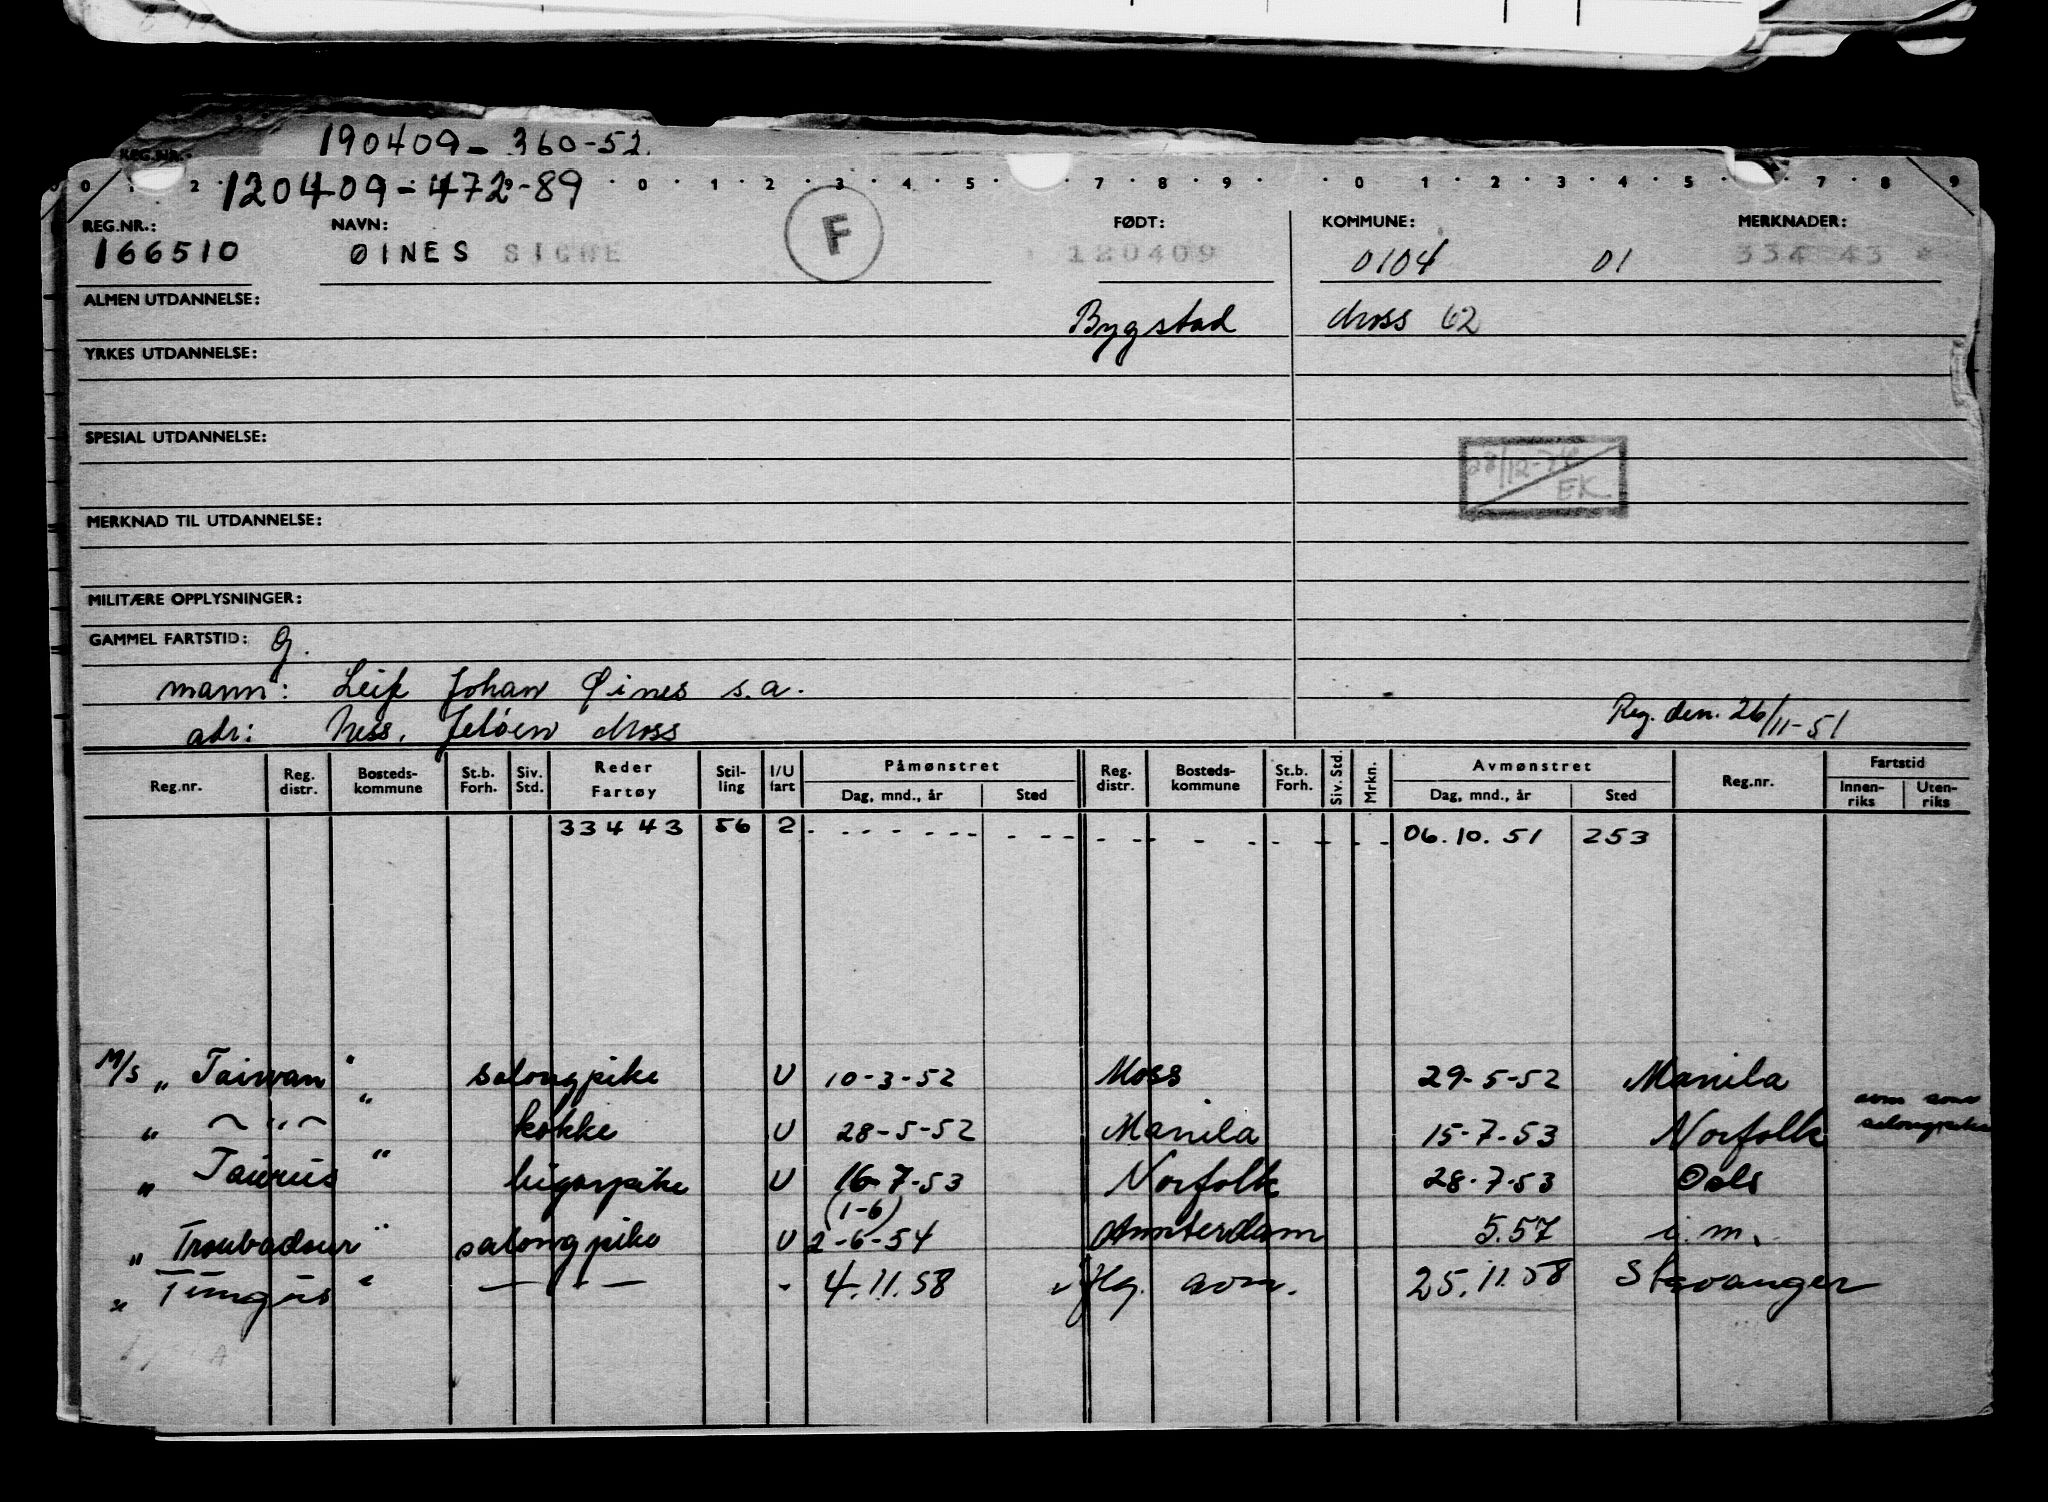 190409-360-52.
REG.NR.:
0 1 2 0 1 2 3 4 5 7 8 9 0 1 2 3 4 5 7 8 9
120409-472-89
REG.NR.: NAVN: F FØDT: KOMMUNE: MERKNADER:
166510 ØINES SIGNE 120409 0104 01 334 43 *
ALMEN UTDANNELSE: Bygstad Moss 62
YRKES UTDANNELSE:
SPESIAL UTDANNELSE:
28/12-74
EK
MERKNAD TIL UTDANNELSE:
MILITÆRE OPPLYSNINGER:
GAMMEL FARTSTID: G.
mann: Leif Johan Øines s.a.
adr: Ness, Jeløen Moss Reg. den. 26/11-51
Reg.nr. Reg. distr. Bosteds-kommune St.b. Forh. Siv. Std. Reder Fartøy Stil-ling I/U fart Påmønstret Dag, mnd., år Sted Reg. distr. Bosteds-kommune St.b. Forh. Siv. Std. Mrkn. Avmønstret Dag, mnd., år Sted Reg.nr. Fartstid Innen-riks Uten-riks
33443 56 2 - - - - - - - - - - - - - - - - - 06.10.51 253
M/S "Taiwan" salongpike U 10-3-52 Moss 29-5-52 Manila
" — " — " kokke U 28-5-52 Manila 15-7-53 Norfolk avm som salongpike
" Taurus " bigarpike U 16-7-53 Norfolk 28-7-53 Oslo
(1-6)
" Troubadour " salongpike U 2-6-54 Amsterdam 5.57 i.m.
" Tungus " — " — - 4.11.58 Hg. avm. 25.11.58 Stavanger